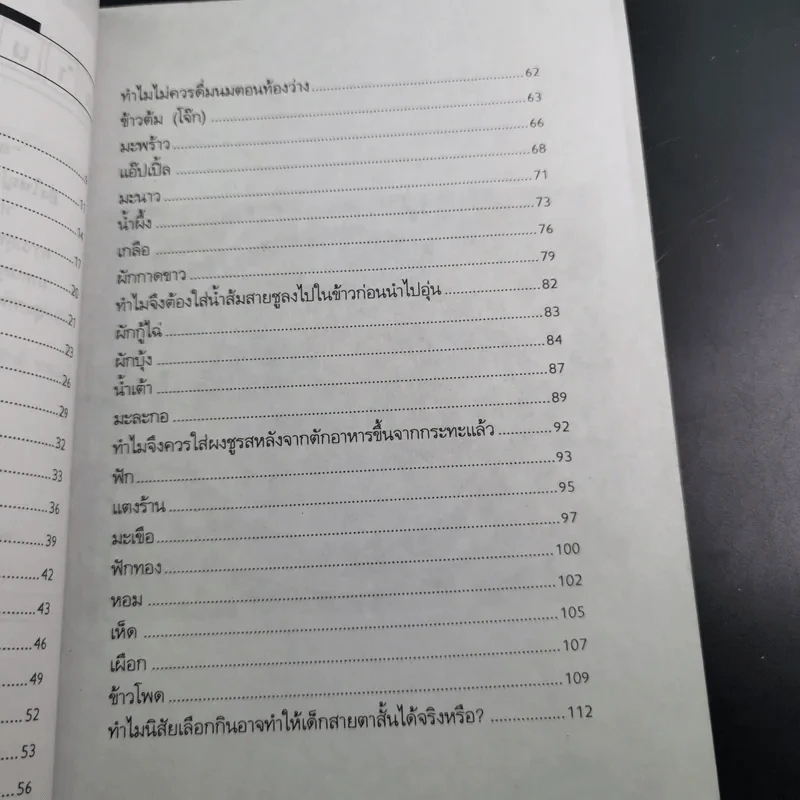 11
14
17
20
21
23
26
29
32
33
36
39
42
43
46
49
52
53
56
ทำไมไม่ควรดื่มนมตอนท้องว่าง 62
ข้าวต้ม (โจ๊ก) 63
มะพร้าว 66
แอ๊ปเปิ้ล 68
มะนาว 71
น้ำผึ้ง 73
เกลือ 76
ผักกาดขาว 79
ทำไมจึงต้องใส่น้ำส้มสายชูลงไปในข้าวก่อนนำไปอุ่น 82
ผักกู้ไฉ่ 83
ผักบุ้ง 84
น้ำเต้า 87
มะละกอ 89
ทำไมจึงควรใส่ผงชูรสหลังจากตักอาหารขึ้นจากกระทะแล้ว 92
ฟัก 93
แตงร้าน 95
มะเขือ 97
ฟักทอง 100
หอม 102
เห็ด 105
เผือก 107
ข้าวโพด 109
ทำไมนิสัยเลือกกินอาจทำให้เด็กสายตาสั้นได้จริงหรือ? 112